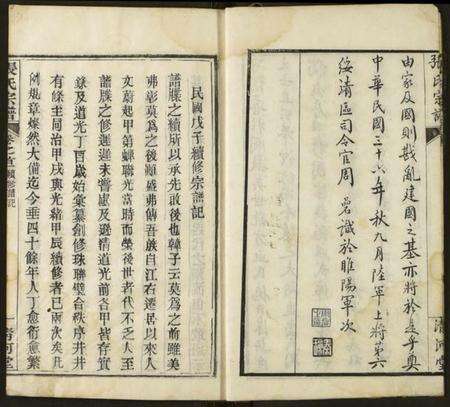 張氏宗譜
由家及國則戡亂建國之基亦將於是乎奠
中華民國三十六年秋九月陸軍上將第六
綏靖區司令官周 碞識於睢陽軍次
清河堂
民國戊午續修宗譜記
譜牒之續所以承先啟後也韓子云莫為之前雖美
弗彰莫為之後雖盛弗傳吾族自江右遷居以來人
文蔚起甲第蟬聯光當時而榮後世者代不乏人至
譜牒之修遲遲未嘗慮及遜清道光前各甲皆存實
錄及道光丁酉歲始彙纂創修珠聯璧合秩序井井
有條至同治甲戌與光緒甲辰續修者已兩次矣凡
例規章燦然大備迄今垂四十餘年人丁愈衍愈繁
張氏宗譜
卷之首 續修譜記
一 清河堂